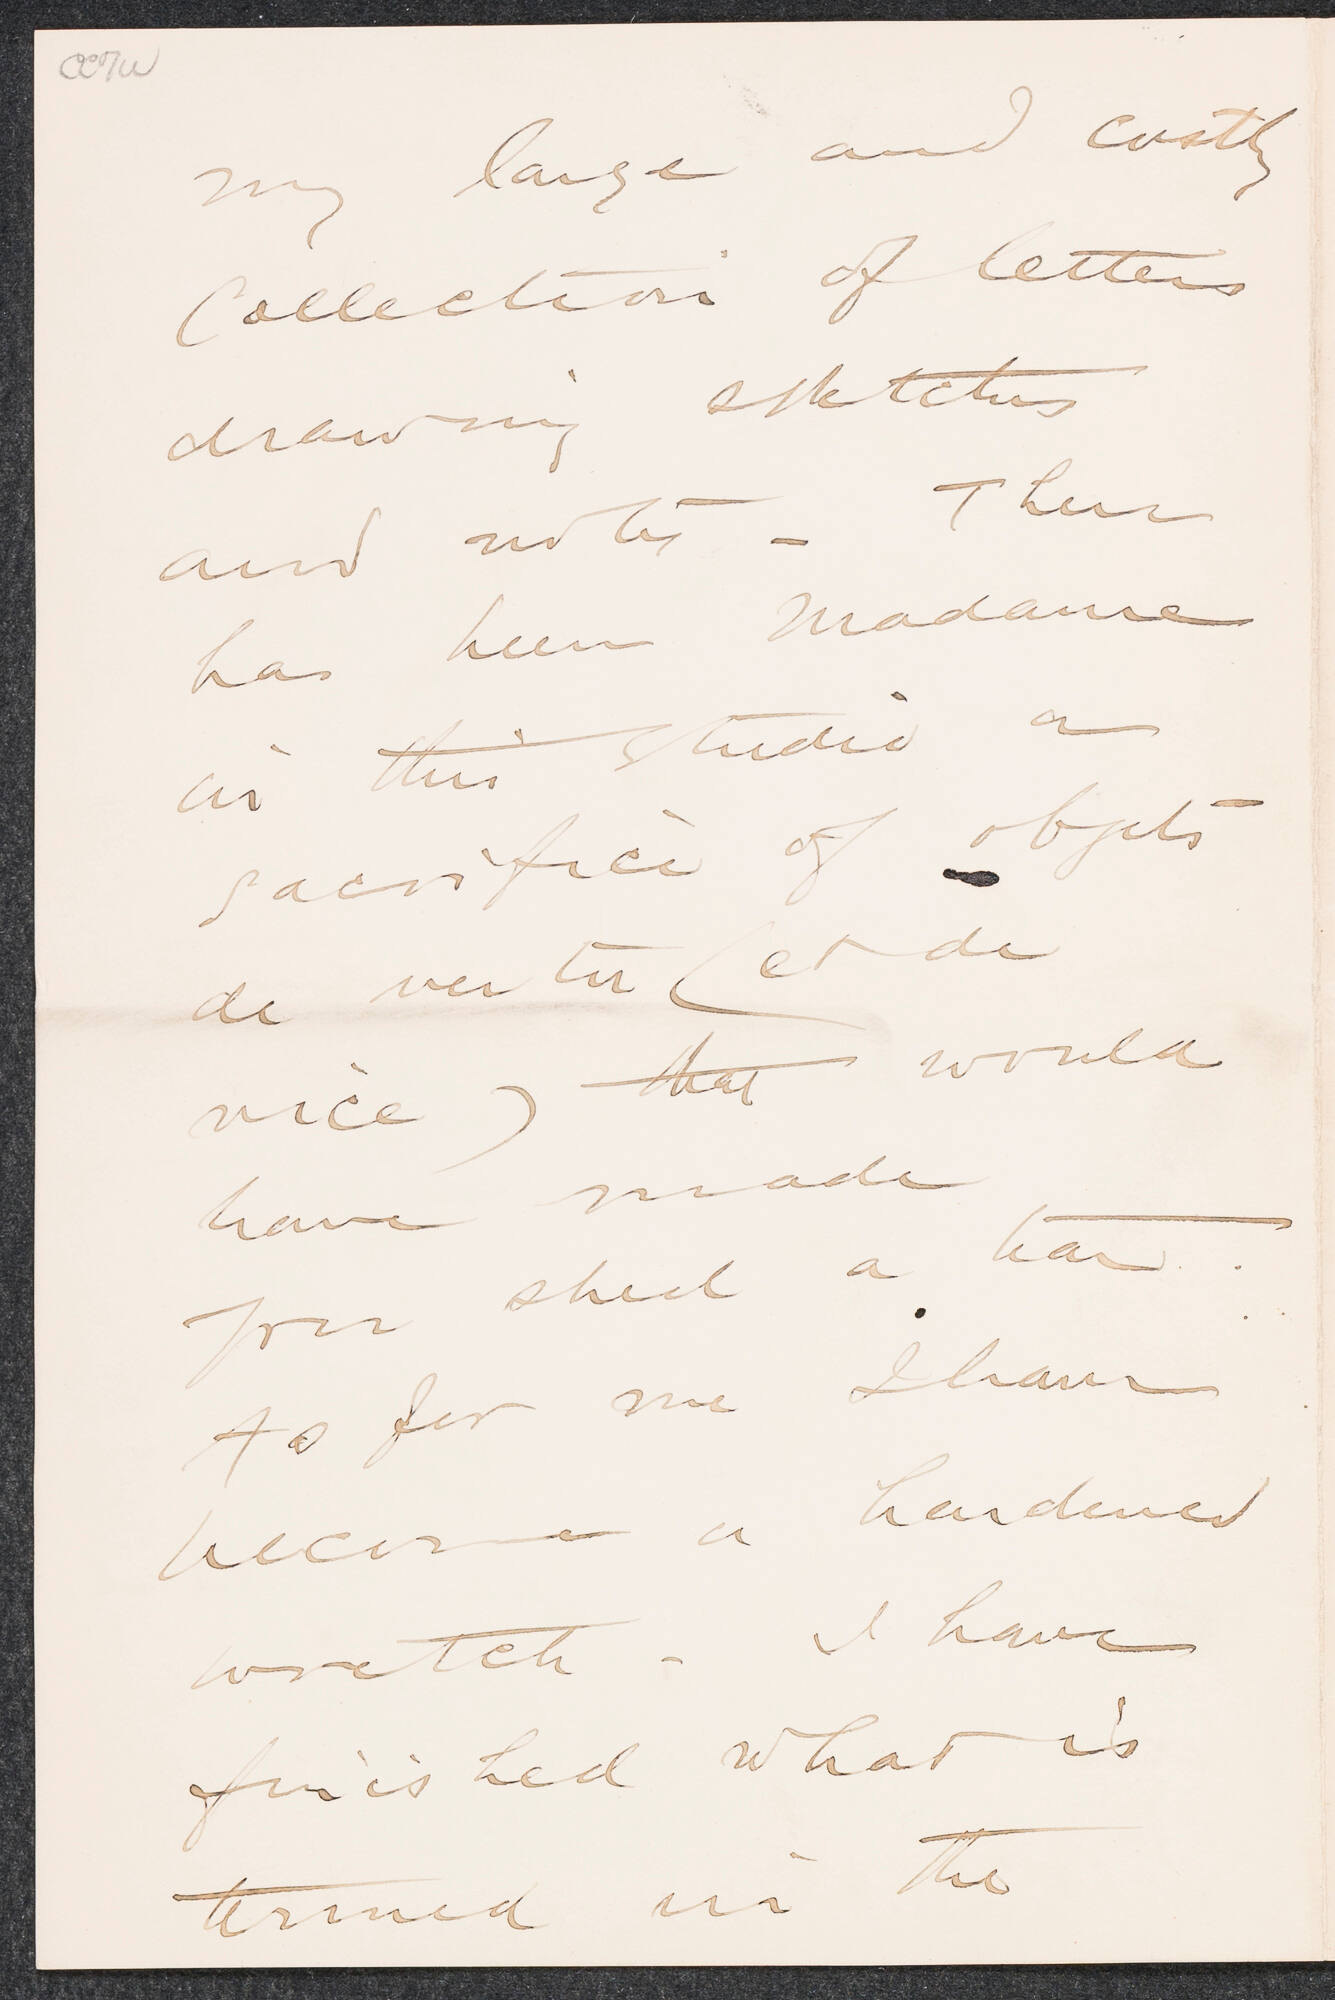 my large and costly
Collection of letters
drawing sketches
and notes - There
has been Madame
in this studio a
sacrifice of objets
de vertu (et de
vice) that would
have made
you shed a tear.
As for me I have
become a hardened
wretch - I have
finished what is
termed in the